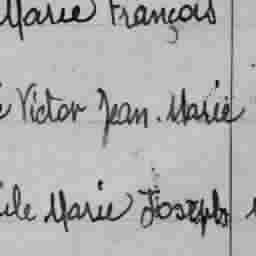 Marie François
Victor Jean-Marie
Marie Joseph